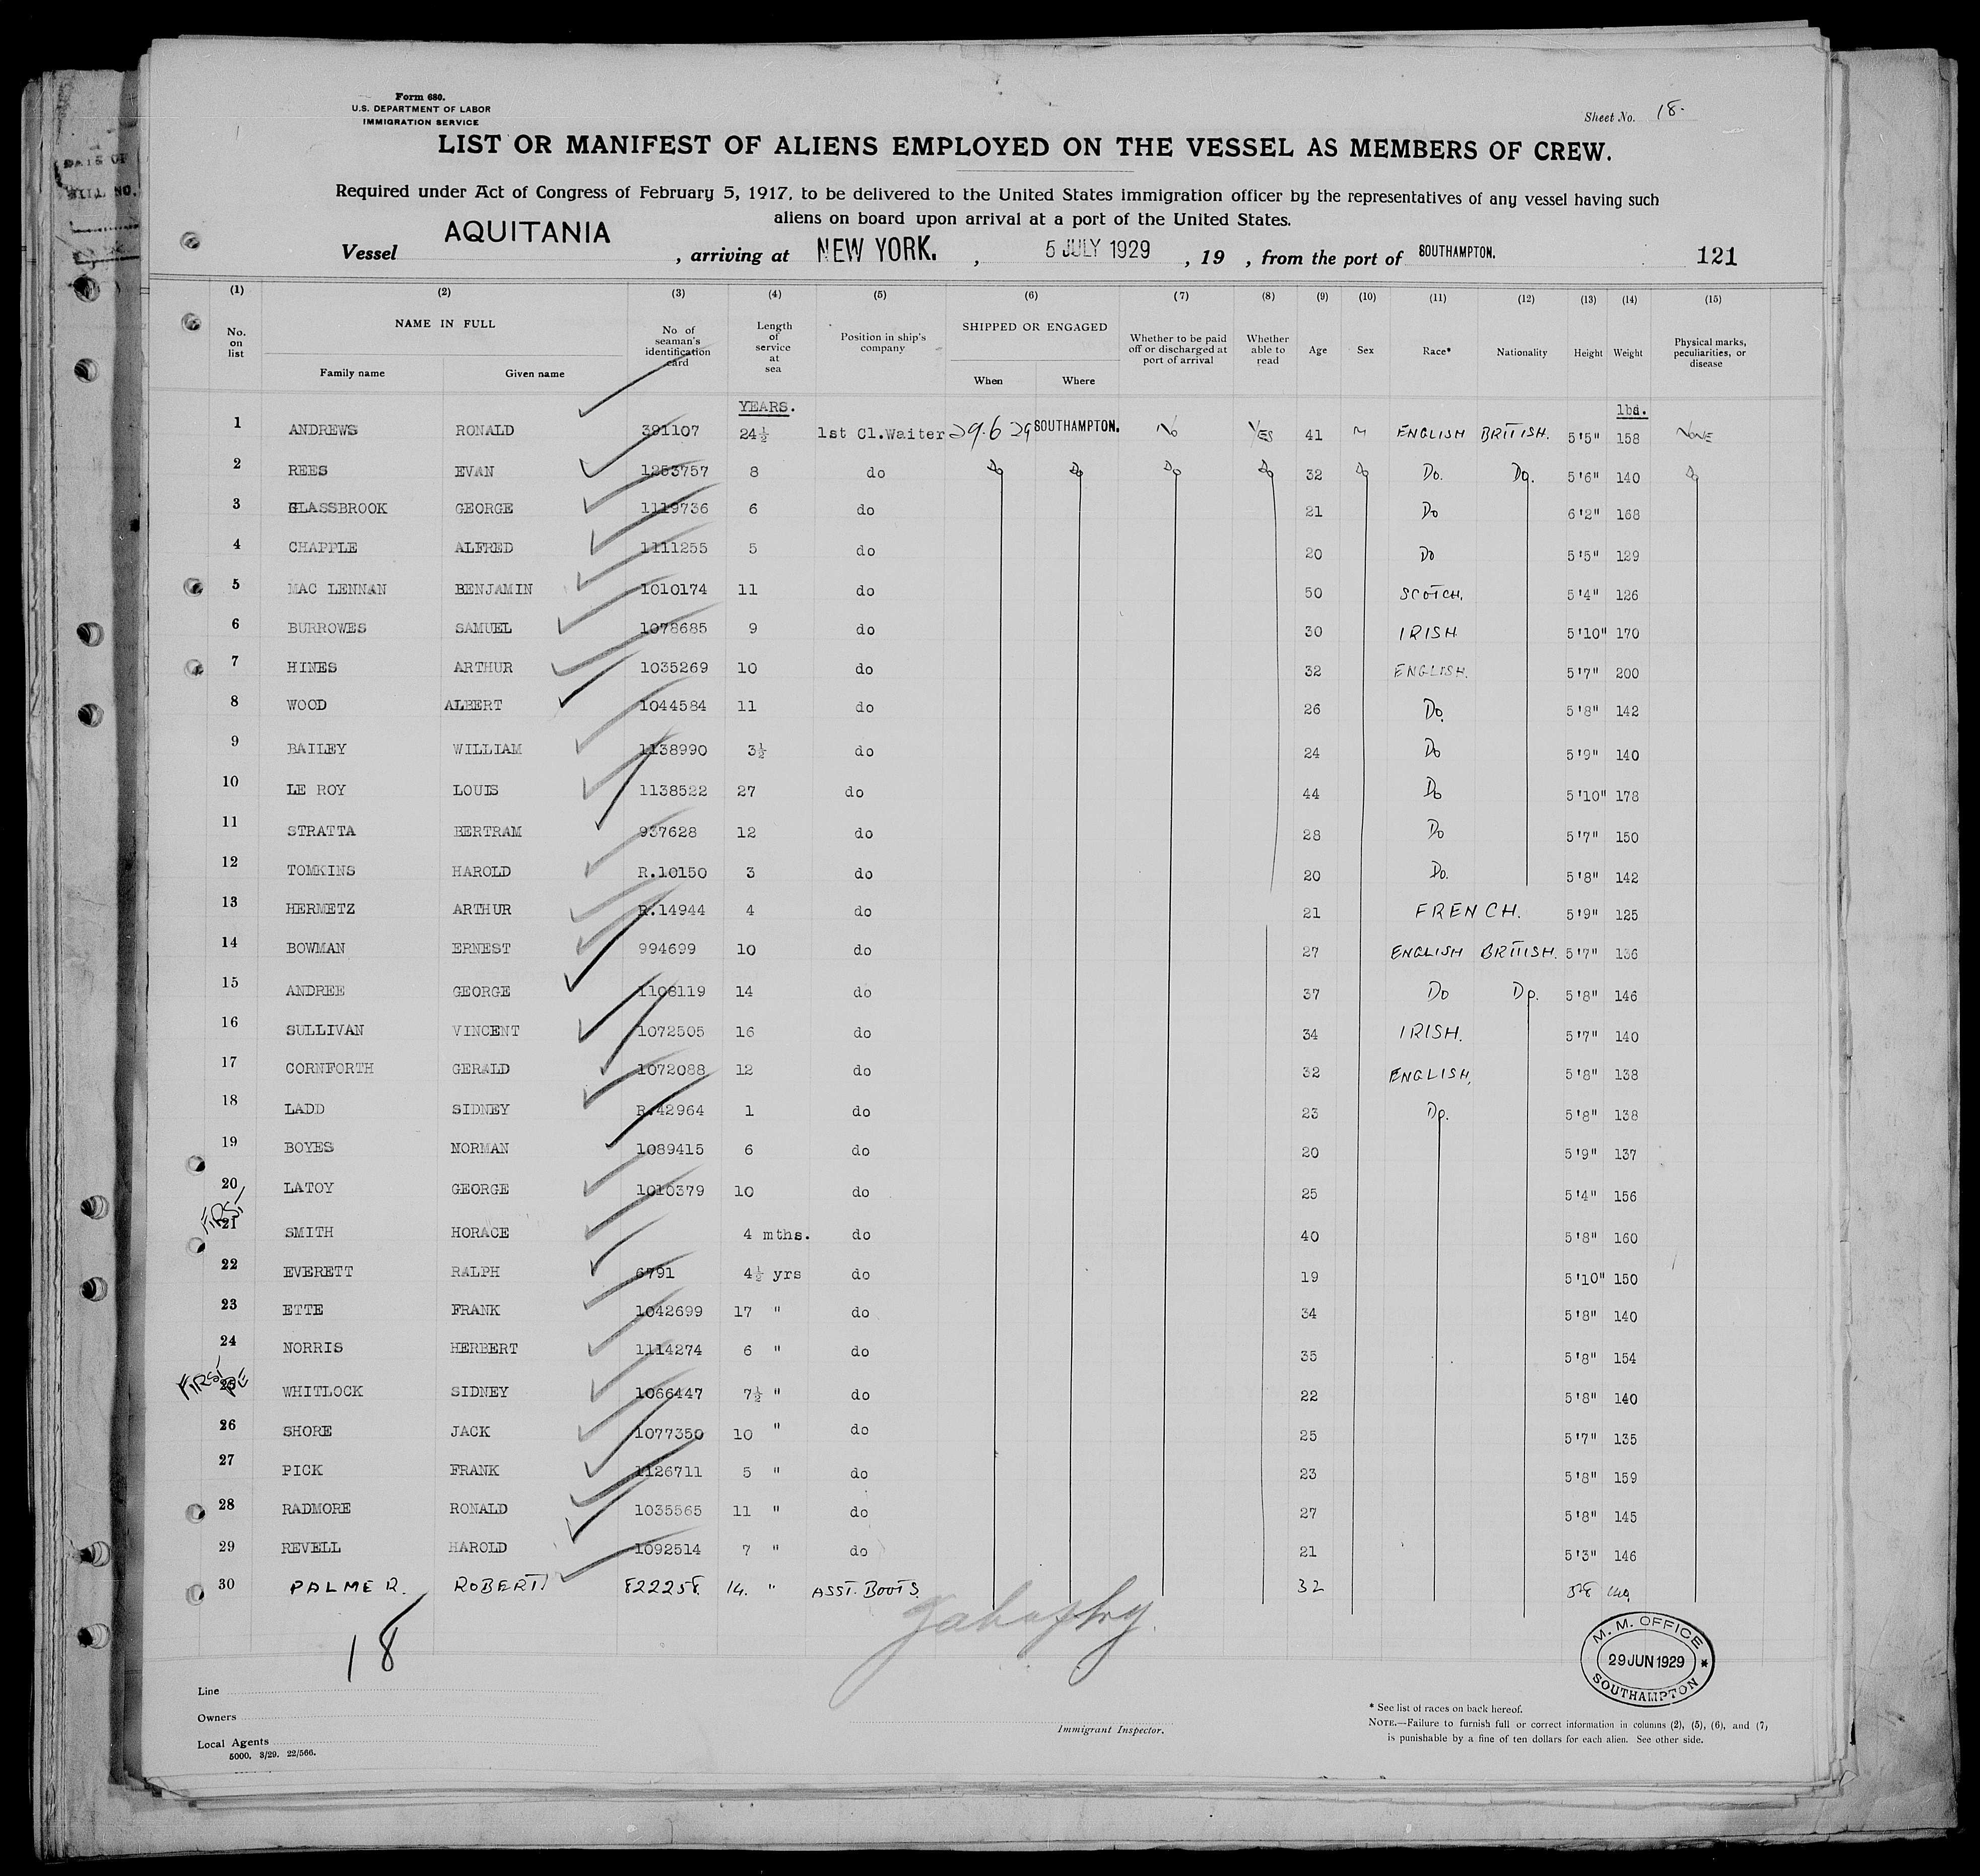 Form 680.
U.S. DEPARTMENT OF LABOR
IMMIGRATION SERVICE
Sheet No. 18.
LIST OR MANIFEST OF ALIENS EMPLOYED ON THE VESSEL AS MEMBERS OF CREW.
Required under Act of Congress of February 5, 1917, to be delivered to the United States immigration officer by the representatives of any vessel having such
aliens on board upon arrival at a port of the United States.
Vessel AQUITANIA, arriving at NEW YORK., 5 JULY 1929, 19 , from the port of SOUTHAMPTON. 121
DATE OF
BILL NO.
(1) (2) (3) (4) (5) (6) (7) (8) (9) (10) (11) (12) (13) (14) (15)
No. on list NAME IN FULL Family name Given name No of seaman's identification card Length of service at sea Position in ship's company SHIPPED OR ENGAGED When Where Whether to be paid off or discharged at port of arrival Whether able to read Age Sex Race* Nationality Height Weight Physical marks, peculiarities, or disease
YEARS. lbs.
1 ANDREWS RONALD 391107 24½ 1st Cl.Waiter 29.6 29 SOUTHAMPTON. No YES 41 M ENGLISH BRITISH. 5'5" 158 NONE
2 REES EVAN 1253757 8 do Do Do Do Do 32 Do Do. Do. 5'6" 140 Do
3 GLASSBROOK GEORGE 1119736 6 do 21 Do 6'2" 168
4 CHAPPLE ALFRED 1111255 5 do 20 Do 5'5" 129
5 MAC LENNAN BENJAMIN 1010174 11 do 50 SCOTCH. 5'4" 126
6 BURROWES SAMUEL 1078685 9 do 30 IRISH 5'10" 170
7 HINES ARTHUR 1035269 10 do 32 ENGLISH. 5'7" 200
8 WOOD ALBERT 1044584 11 do 26 Do. 5'8" 142
9 BAILEY WILLIAM 1138990 3½ do 24 Do 5'9" 140
10 LE ROY LOUIS 1138522 27 do 44 Do 5'10" 178
11 STRATTA BERTRAM 937628 12 do 28 Do 5'7" 150
12 TOMKINS HAROLD R.10150 3 do 20 Do. 5'8" 142
13 HERMETZ ARTHUR R.14944 4 do 21 FRENCH. 5'9" 125
14 BOWMAN ERNEST 994699 10 do 27 ENGLISH BRITISH. 5'7" 136
15 ANDREE GEORGE 1108119 14 do 37 Do Do. 5'8" 146
16 SULLIVAN VINCENT 1072505 16 do 34 IRISH. 5'7" 140
17 CORNFORTH GERALD 1072088 12 do 32 ENGLISH. 5'8" 138
18 LADD SIDNEY R.42964 1 do 23 Do. 5'8" 138
19 BOYES NORMAN 1089415 6 do 20 5'9" 137
20 LATOY GEORGE 1010379 10 do 25 5'4" 156
21 SMITH HORACE 4 mths. do 40 5'8" 160
22 EVERETT RALPH 6791 4½ yrs do 19 5'10" 150
23 ETTE FRANK 1042699 17 " do 34 5'8" 140
24 NORRIS HERBERT 1114274 6 " do 35 5'8" 154
25 WHITLOCK SIDNEY 1066447 7½ " do 22 5'8" 140
26 SHORE JACK 1077350 10 " do 25 5'7" 135
27 PICK FRANK 1126711 5 " do 23 5'8" 159
28 RADMORE RONALD 1035565 11 " do 27 5'8" 145
29 REVELL HAROLD 1092514 7 " do 21 5'3" 146
30 PALMER. ROBERT 822258 14. " ASST. BOOTS. 32 5'8
18
M. M. OFFICE
29 JUN 1929
SOUTHAMPTON
Line
Owners
Local Agents
5000. 3/29. 22/566.
Immigrant Inspector.
* See list of races on back hereof.
NOTE.—Failure to furnish full or correct information in columns (2), (5), (6), and (7,
is punishable by a fine of ten dollars for each alien. See other side.